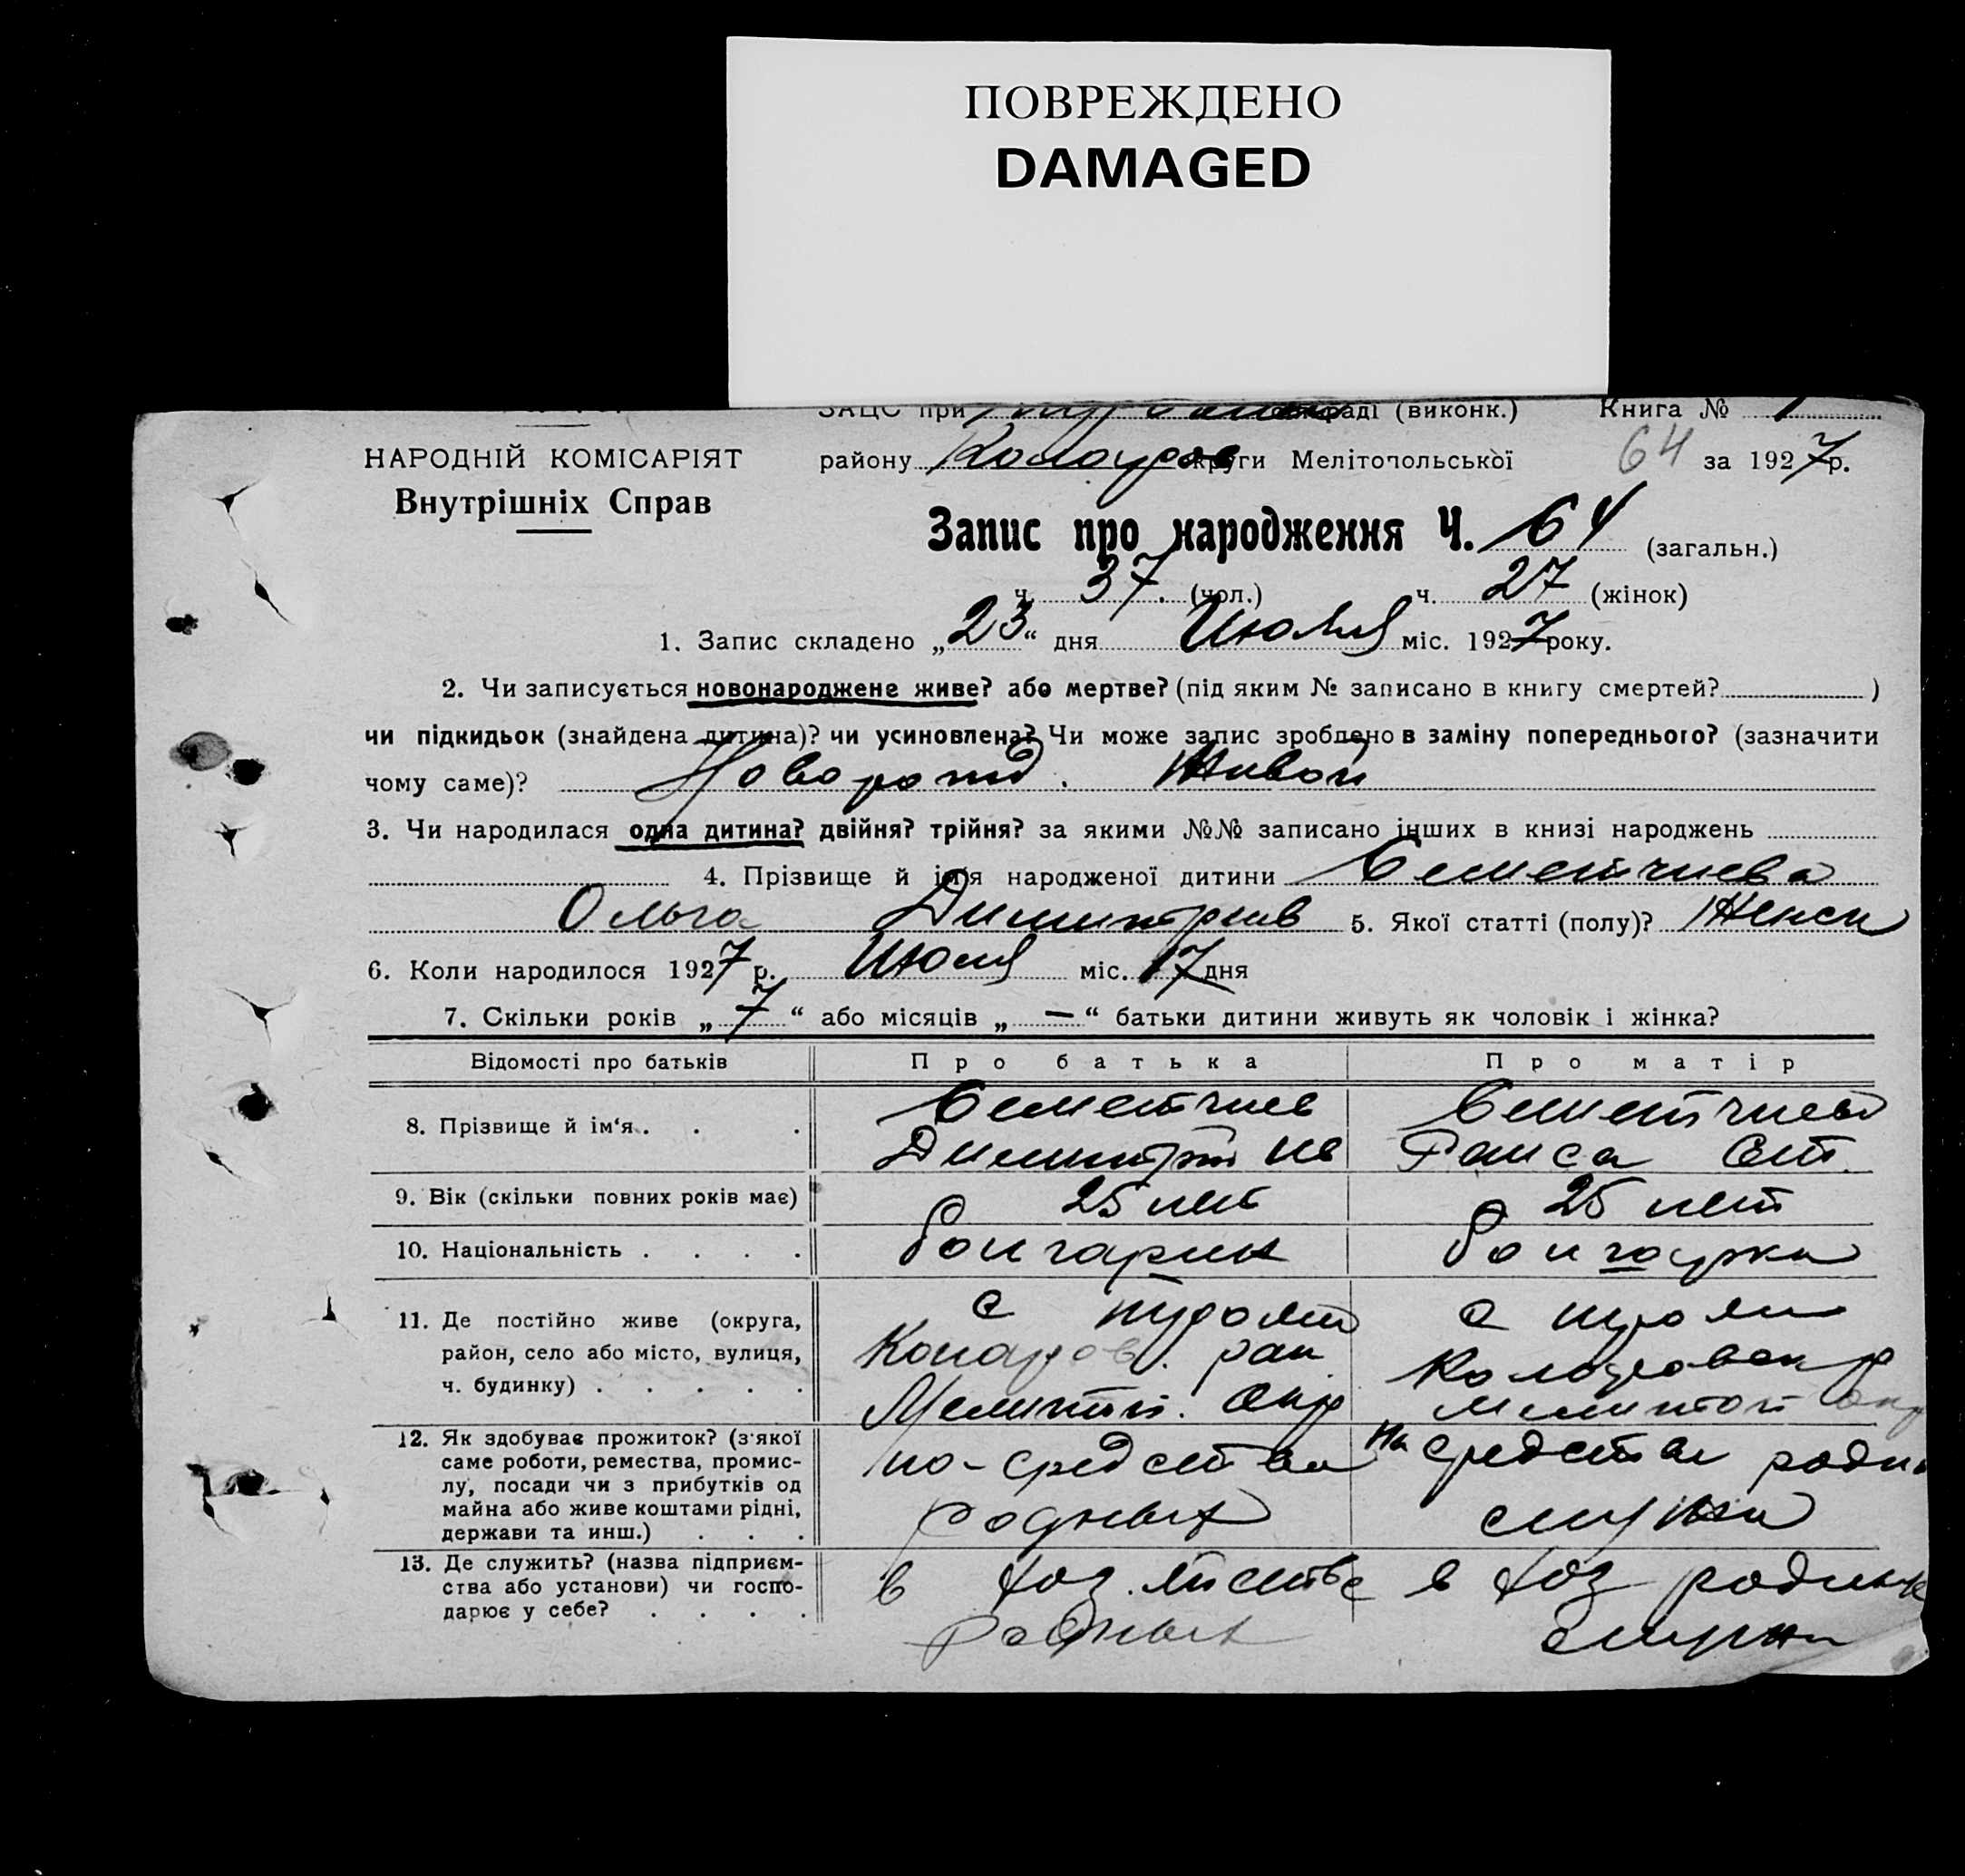 ПОВРЕЖДЕНО
DAMAGED
ЗАЦС при сельраді (виконк.) Книга № 1
НАРОДНІЙ КОМІСАРІЯТ
району округи Мелітопольської 64 за 1927р.
Внутрішніх Справ
Запис про народження Ч. 64 (загальн.)
ч. 37. (чол.) ч. 27 (жінок)
1. Запис складено „23“ дня Июля міс. 1927 року.
2. Чи записується новонароджене живе? або мертве? (під яким № записано в книгу смертей? )
чи підкидьок (знайдена дитина)? чи усиновлена? Чи може запис зроблено в заміну попереднього? (зазначити
чому саме)? Заворожд. Живой
3. Чи народилася одна дитина? двійня? трійня? за якими №№ записано інших в книзі народжень
4. Прізвище й ім'я народженої дитини Беметчиева
Ольга Димитрив 5. Якої статті (полу)? Женск
6. Коли народилося 1927 р. Июля міс. 17 дня
7. Скільки років „7“ або місяців „—“ батьки дитини живуть як чоловік і жінка?
Відомості про батьків Про батька Про матір
8. Прізвище й ім‘я . . . Беметчиев Беметчиева
Димитрий Ив Раиса Ст.
9. Вік (скільки повних років має) 25 лет 25 лет
10. Національність . . . . болгарин болгарка
11. Де постійно живе (округа, с с
район, село або місто, вулиця, Коларов. рай
ч. будинку) . . . . . Мелитоп. окр Мелитоп окр
12. Як здобуває прожиток? (з'якої
саме роботи, ремества, промис- на средства На средства родн
лу, посади чи з прибутків од
майна або живе коштами рідні, родных мужа
держави та инш.) . . .
13. Де служить? (назва підприєм-
ства або установи) чи госпо- в хоз родных
дарює у себе? . . . . родных мужа